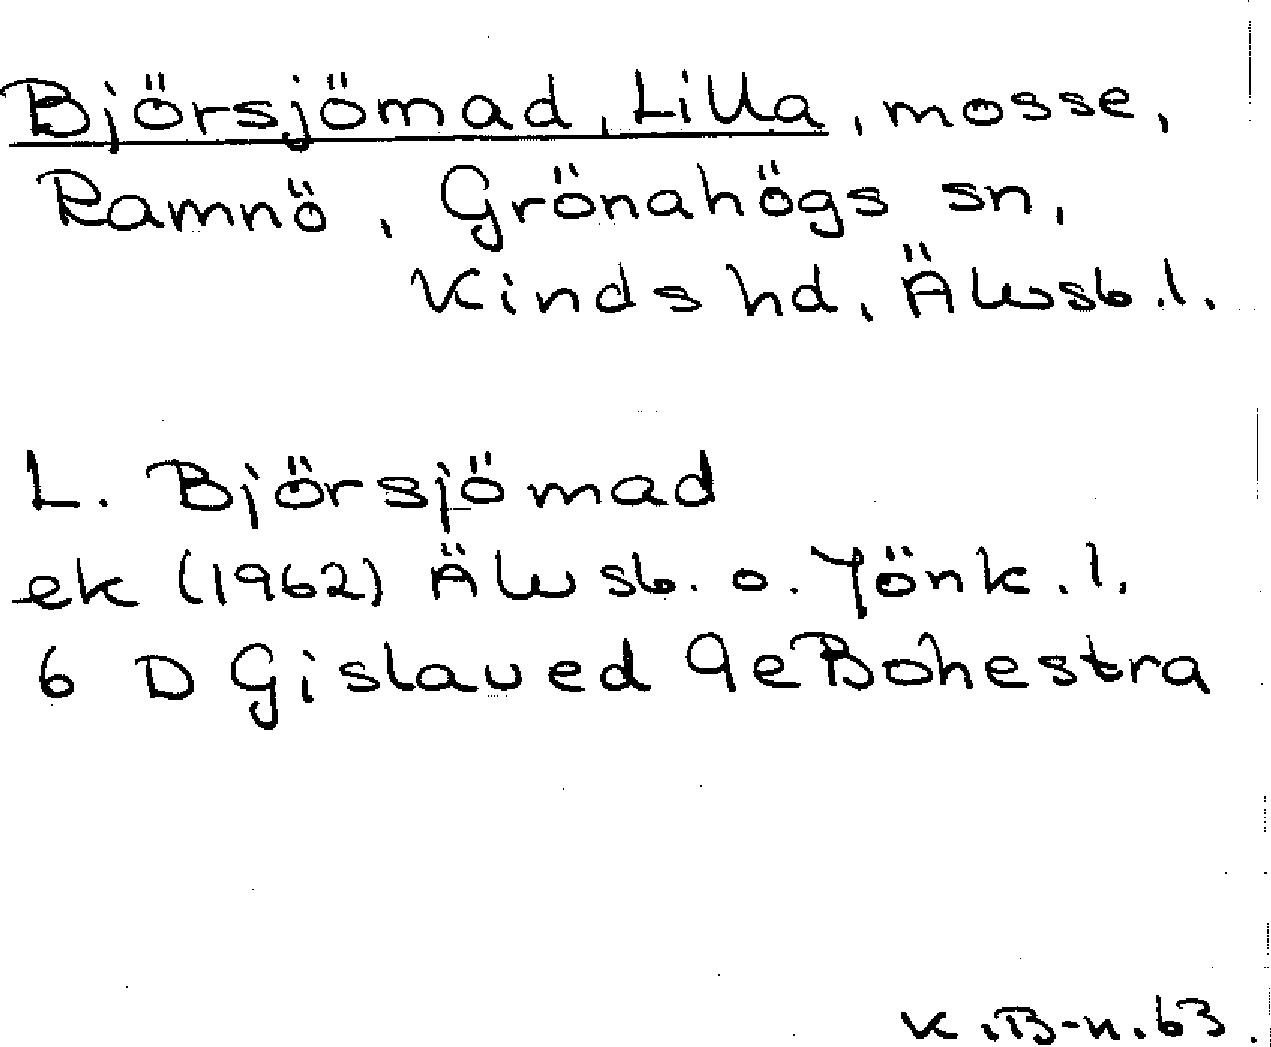 Björsjömad, Lilla, mosse,
Ramnö, Grönahögs sn,
Kinds hd, Älvsb.l.
L. Björsjömad
ek (1962) Älvsb. o. Jönk.l.
6 D Gislaved 9e Bohestra
K.B-n.63.